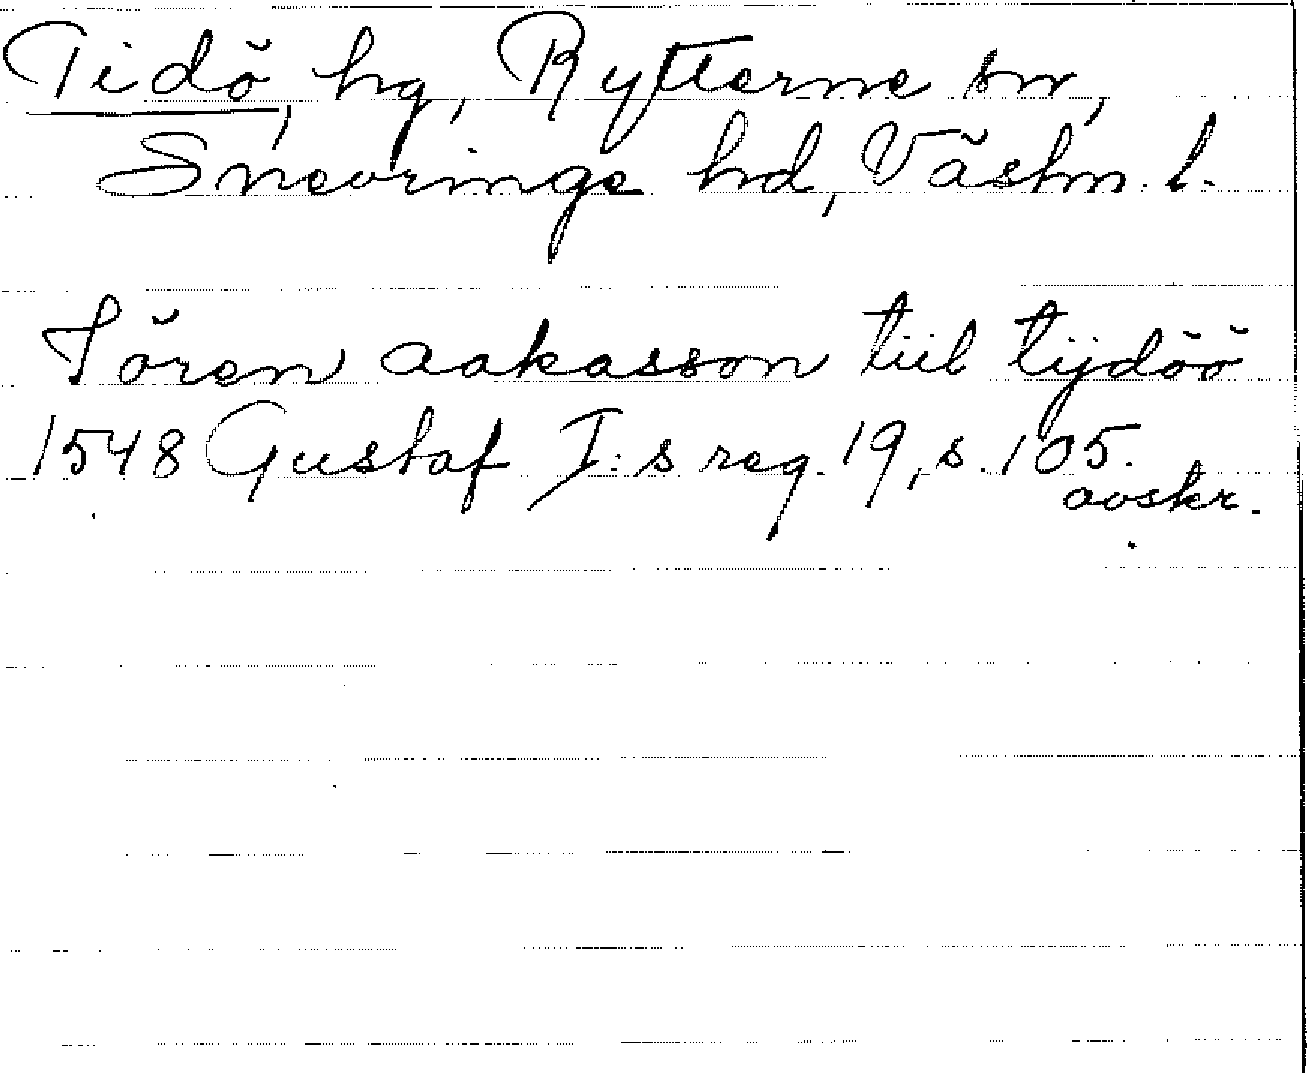 Tidö, hg, Rytterne sn,
Snevringe hd, Västm. l.
Sören aakasson tiil tijdöö
1548 Gustaf I:s reg. 19, s. 105.
avskr.